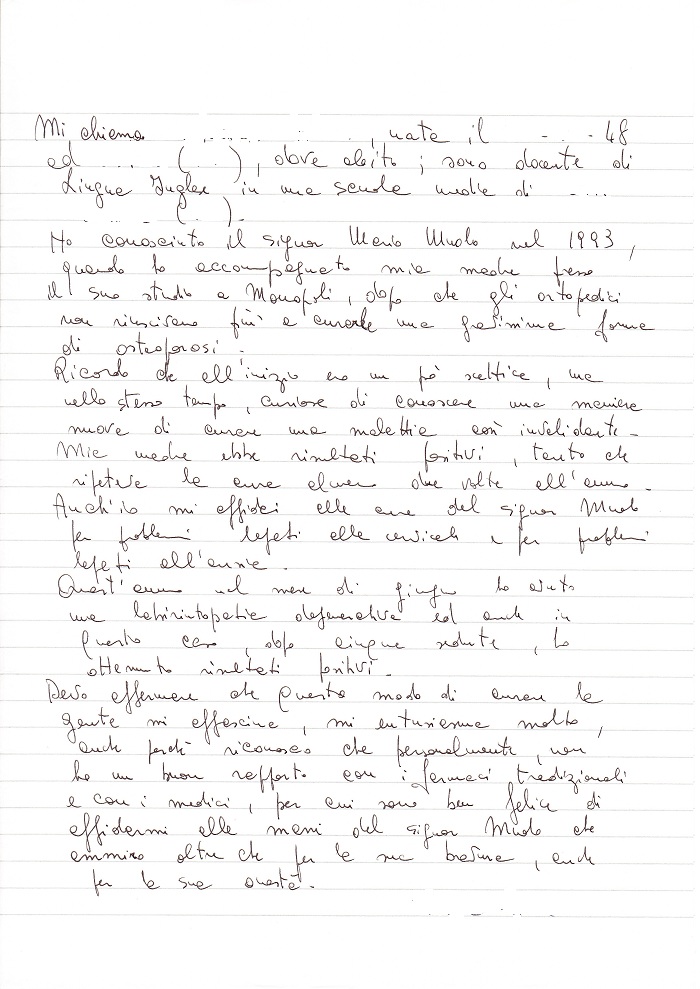 Mi chiamo ..............., nata il - . - . 48
ad ..... (..), dove abito; sono docente di
Lingua Inglese in una scuola media di .....
........ (..).
Ho conosciuto il signor Mario Muolo nel 1993,
quando ho accompagnato mia madre presso
il suo studio a Monopoli, dopo che gli ortopedici
non riuscivano più a curarle una gravissima forma
di osteoporosi.
Ricordo che all'inizio ero un pò scettica, ma
nello stesso tempo, curiosa di conoscere una maniera
nuova di curare una malattia così invalidante.
Mia madre ebbe risultati positivi, tanto che
ripeteva la cura almeno due volte all'anno.
Anch'io mi affidai alle cure del signor Muolo
per problemi legati alla cervicale e per problemi
legati all'ernia.
Quest'anno nel mese di giugno ho avuto
una labirintopatia degenerativa ed anche in
questo caso, dopo cinque sedute, ho
ottenuto risultati positivi.
Devo affermare che questo modo di curare la
gente mi affascina, mi entusiasma molto,
anche perchè riconosco che personalmente, non
ho un buon rapporto con i farmaci tradizionali
e con i medici, per cui sono ben felice di
affidarmi alle mani del signor Muolo che
ammiro oltre che per la sua bravura, anche
per la sua onestà.